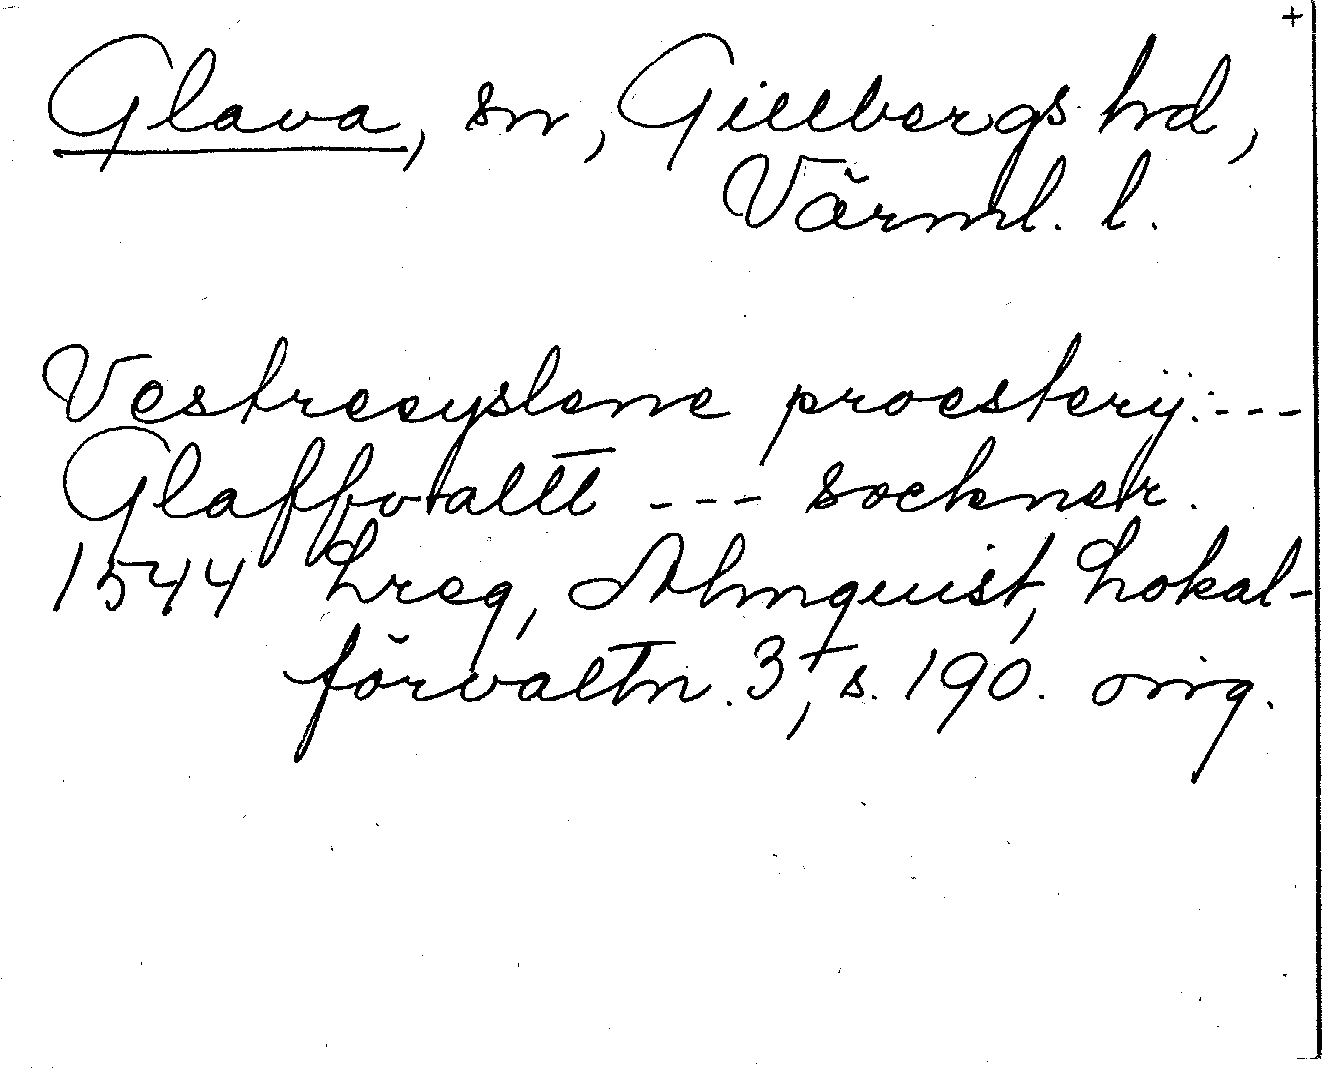 +
Glava, sn, Gillbergs hd,
Värml. l.
Vestrecyslene proesterij: ---
Glaffvaltt --- sockner.
1544 Lreg, Almquist, Lokal-
förvaltn. 3, s. 190. orig.